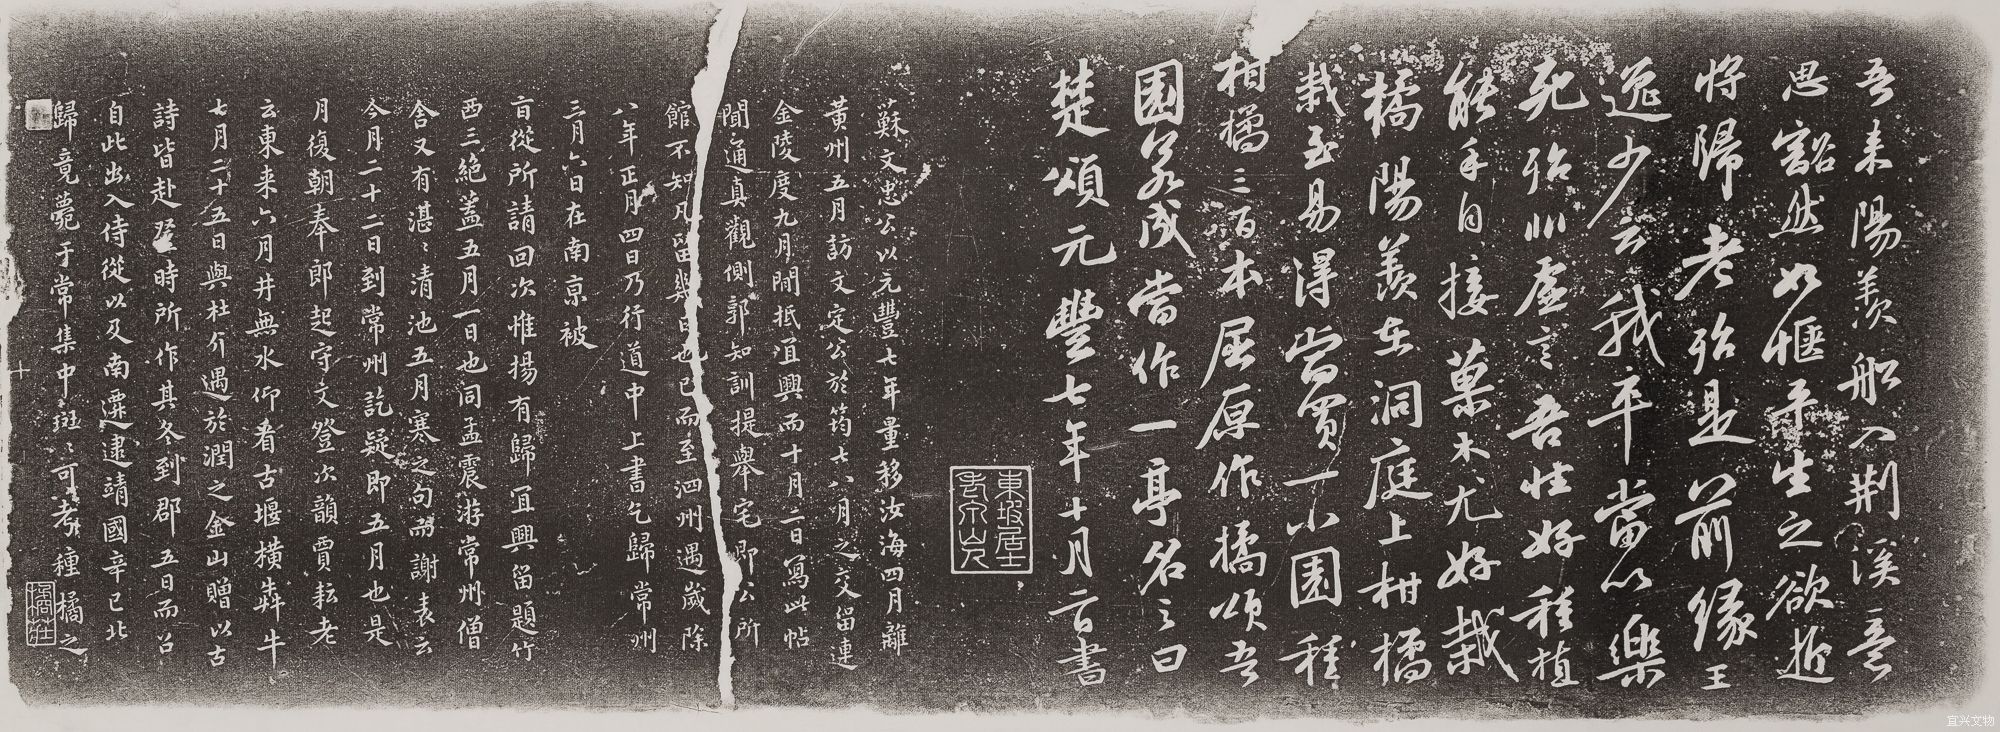 吾来陽羨船入荆溪意
思豁然如惬平生之欲逝
将歸老殆是前緣王
逸少云我卒當以樂
死殆非虚言吾性好種植
能手自接菓木尤好栽
橘陽羨在洞庭上柑橘
栽至易得當買一小園種
柑橘三百本屈原作橘頌吾
園若成當作一亭名之曰
楚頌元豐七年十月二日書
東坡居士
老泉山人
蘇文忠公以元豐七年量移汝海四月離
黃州五月訪文定公於筠七八月之交留連
金陵度九月間抵宜興而十月二日寫此帖
聞通真觀側郭知訓提舉宅即公所
館不知凡留幾日也已而至泗州遇歲除
八年正月四日乃行道中上書乞歸常州
三月六日在南京被
旨從所請回次惟揚有歸宜興留題竹
西三絶蓋五月一日也同孟震游常州僧
舍又有湛湛清池五月寒之句而謝表云
今月二十二日到常州訖疑即五月也是
月復朝奉郎起守文登次韻賈耘老
云東来六月井無水仰看古堰横奔牛
七月二十五日與杜介遇於潤之金山贈以古
詩皆赴登時所作其冬到郡五日而召
自此出入侍從以及南遷逮靖國辛巳北
歸竟薨于常集中班班可考種橘之
宜兴文物